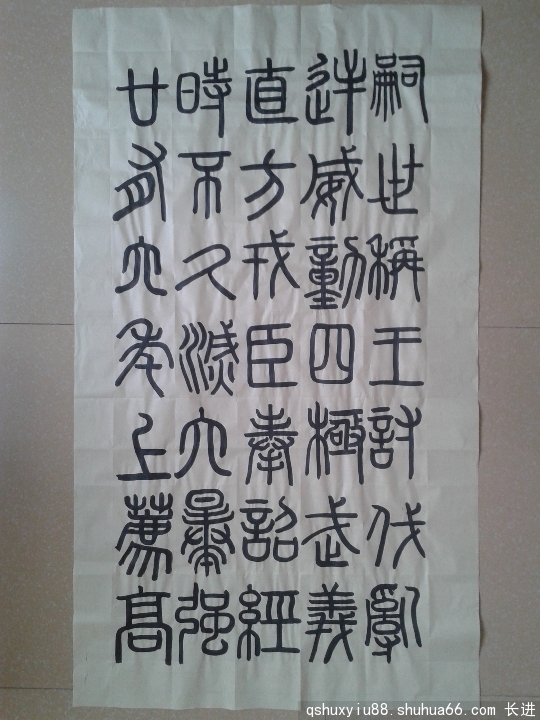 嗣世稱王討伐亂
逆威動四極武義
直方戎臣奉詔經
時不久滅六暴強
廿有六年上薦高
qshuxyiu88.shuhua66.com 长进